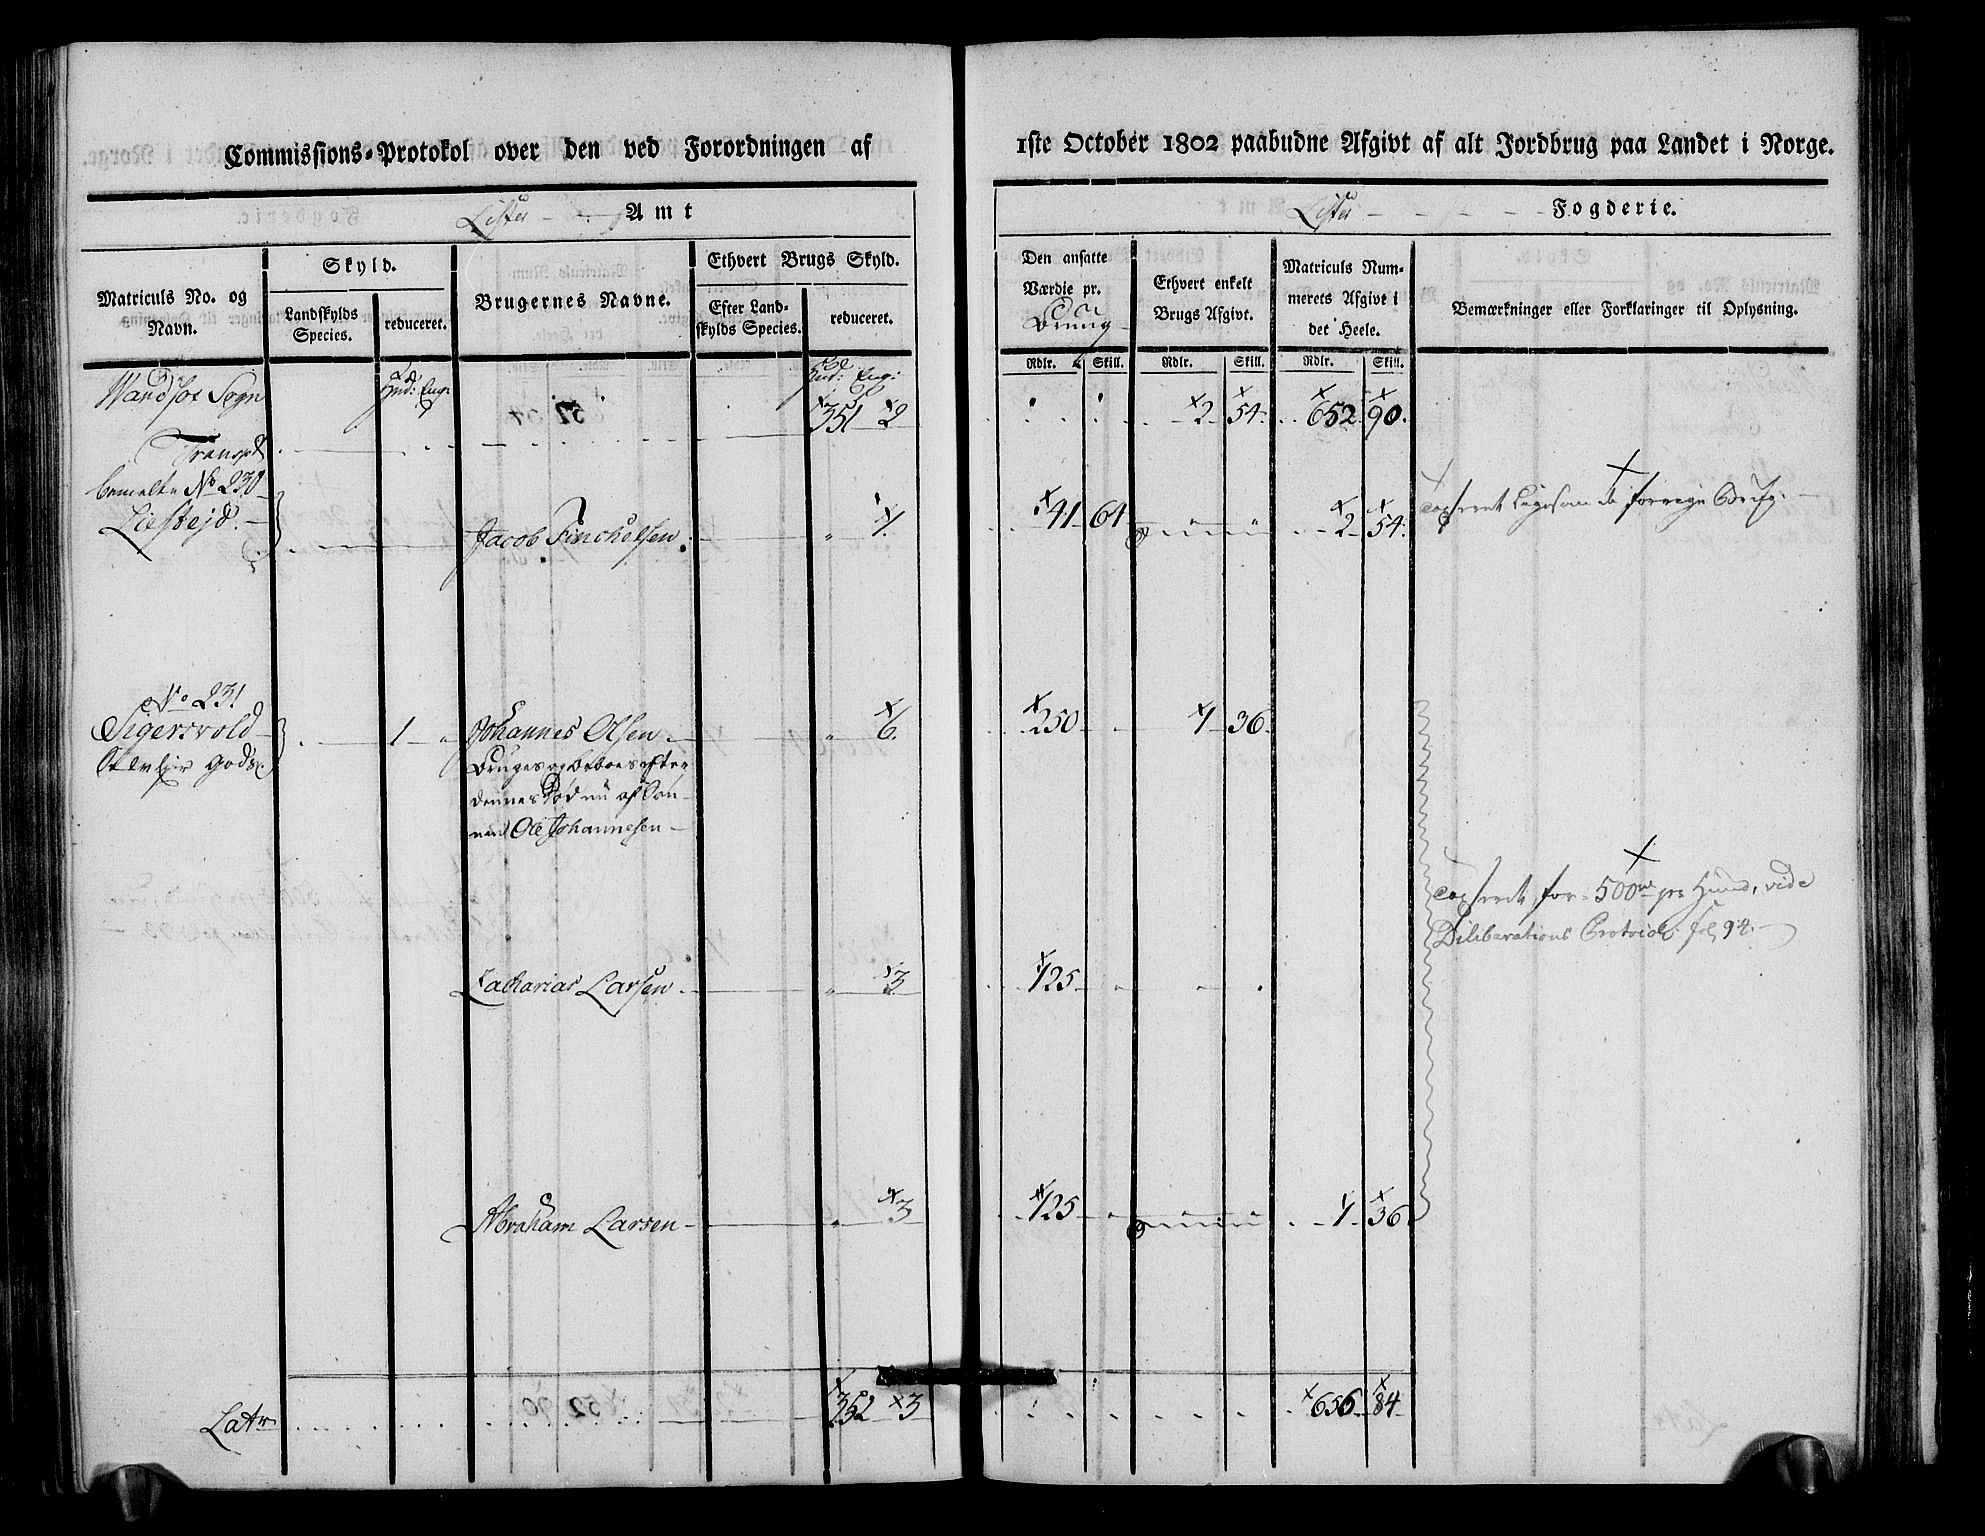 Commissions-Protokol over den ved Forordningen af 1ste October 1802 paabudne Afgivt af alt Jordbrug paa Landet i Norge.
Lister Amt
Lister Fogderie.
Matriculs No. og Navn.
Skyld.
Landskylds Species.
reduceret.
Brugernes Navne.
Ethvert Brugs Skyld.
Efter Landskylds Species.
reduceret.
Den ansatte Værdie pr.
Ethvert enkelt Brugs Afgivt.
Matriculs Nummerets Afgivt i det Heele.
Bemærkninger eller Forklaringer til Oplysning.
Rdlr. Skill. Rdlr. Skill. Rdlr. Skill.
Sogn Hud: Eng: Hud: Eng:
Transpt 351 2 2 54 652 90.
No 230
Liestejd. Jacob Finchelsen 1. 41 64 2 54.
No 231
Sigersvold 1 Johannes Olsen 6. 250 1 36
gods. Bruges og beboes efter
dennes Død nu af Søn-
nen Ole Johannesen
for 500 pr Hud, vide
Deliberations Protocol fol 94.
Zacharias Larsen 3 125
Abraham Larsen 3 125 1 36
Latr 352 3 656 84